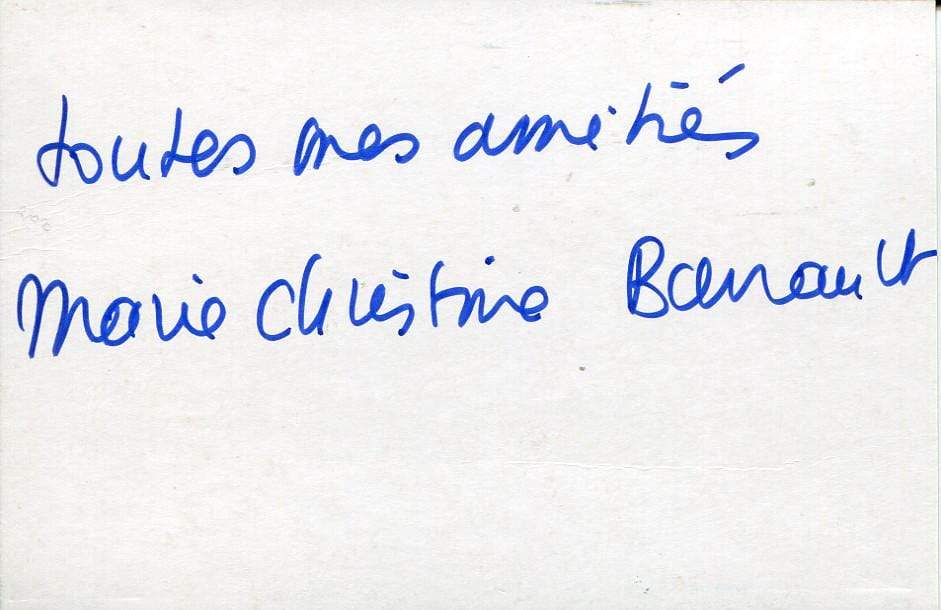 toutes mes amitiés
Marie Christine Barrault